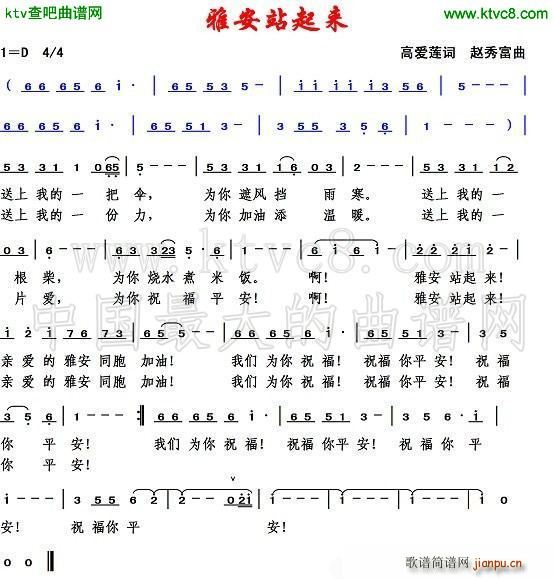 ktv查吧曲谱网
www.ktvc8.com
雅安站起来
1=D 4/4
高爱莲词 赵秀富曲
( 66 65 6 i· | 65 53 5 - | ii ii ii i3 56 | 5 - - - |
66 65 6 i· | 65 53 5 - | 33 55 3 5 6 | 1 - - - )
53 31 1 065 | 5 - - - | 53 31 1 03 | 2 - - - | 53 31 1
送上 我的 一 把 伞， 为你 遮风 挡 雨 寒。 送上 我的 一
送上 我的 一 份 力， 为你 加油 添 温 暖。 送上 我的 一
www.ktvc8.com
中国最大的曲谱网
根 柴， 为你 烧水 煮 米 饭。 啊！ 啊！ 雅安 站起 来！
片 爱， 为你 祝 福 平 安！ 啊！ 啊！ 雅安 站起 来！
亲 爱 的 雅安 同胞 加油！ 我们 为你 祝福！ 祝福 你平 安！ 祝 福
亲 爱 的 雅安 同胞 加油！ 我们 为你 祝福！ 祝福 你平 安！ 祝 福
你 平 安！ 我们 为你 祝 福！ 祝福 你平 安！ 祝 福 你 平
你 平 安！
安！ 祝 福 你 平 安！
0 0
歌谱简谱网
jianpu.cn